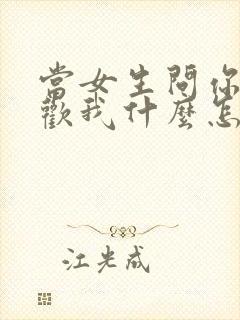 當女生問你
歡我什麼怎
江光成